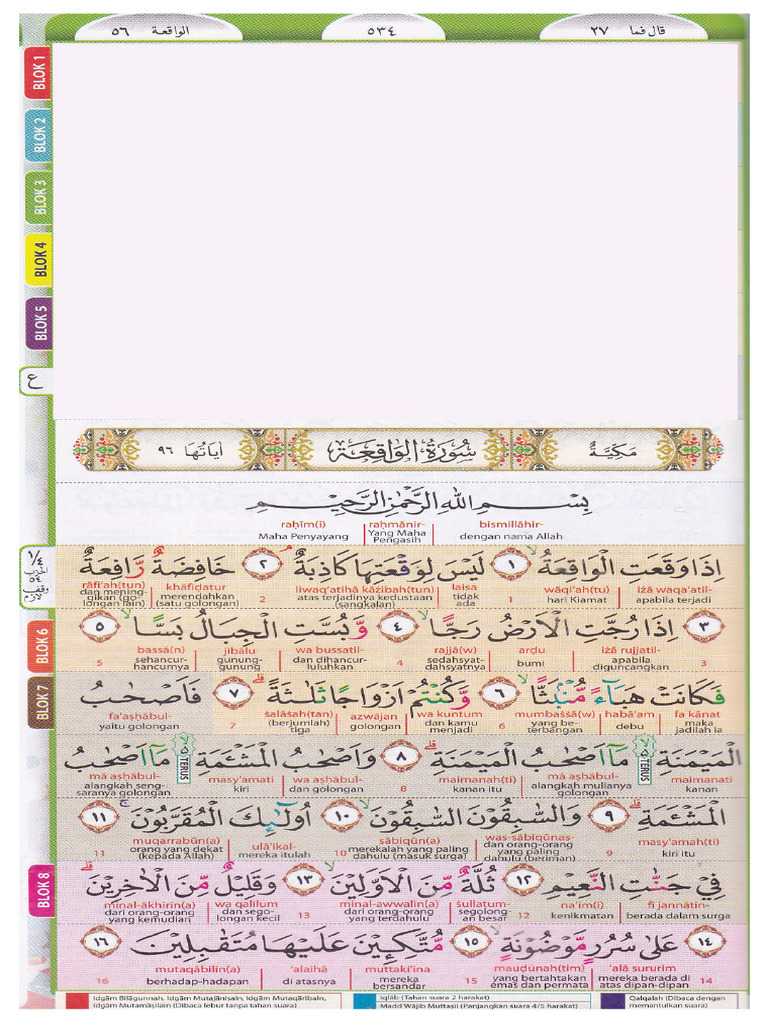 قال فما ٢٧
٥٣٤
الواقعة ٥٦
BLOK 1
BLOK 2
BLOK 3
BLOK 4
BLOK 5
ع
مَكِّيَّةٌ
سُوْرَةُ الْوَاقِعَةِ
اٰيَاتُهَا ٩٦
بِسْمِ اللّٰهِ الرَّحْمٰنِ الرَّحِيْمِ
bismillāhir- raḥmānir- raḥīm(i)
dengan nama Allah Yang Maha Pengasih Maha Penyayang
١/٤ الحزب ٥٤
وقف لازم
اِذَا وَقَعَتِ الْوَاقِعَةُۙ ١ لَيْسَ لِوَقْعَتِهَا كَاذِبَةٌۘ ٢ خَافِضَةٌ رَّافِعَةٌ
iżā waqa'atil- wāqi'ah(tu) laisa liwaq'atihā kāżibah(tun) khāfiḍatur rāfi'ah(tun)
apabila terjadi hari Kiamat 1 tidak ada atas terjadinya kedustaan (sangkalan) 2 merendahkan (satu golongan) dan meninggikan (golongan lain)
٣ اِذَا رُجَّتِ الْاَرْضُ رَجًّاۙ ٤ وَّبُسَّتِ الْجِبَالُ بَسًّاۙ ٥
iżā rujjatil- arḍu rajjā(w) wa bussatil- jibālu bassā(n)
3 apabila diguncangkan bumi sedahsyat-dahsyatnya 4 dan dihancurluluhkan gunung-gunung sehancur-hancurnya 5
BLOK 6
فَكَانَتْ هَبَاۤءً مُّنْۢبَثًّاۙ ٦ وَّكُنْتُمْ اَزْوَاجًا ثَلٰثَةًۗ ٧ فَاَصْحٰبُ
fa kānat habā'am mumbaṡṡā(w) wa kuntum azwājan ṡalāṡah(tan) fa'aṣḥābul-
maka jadilah ia debu yang beterbangan 6 dan kamu menjadi golongan (berjumlah) tiga 7 yaitu golongan
BLOK 7
الْمَيْمَنَةِ مَآ اَصْحٰبُ الْمَيْمَنَةِۗ ٨ وَاَصْحٰبُ الْمَشْـَٔمَةِ مَآ اَصْحٰبُ
TERUS
TERUS
maimanati mā aṣḥābul- maimanah(ti) wa aṣḥābul- masy'amati mā aṣḥābul-
kanan alangkah mulianya golongan kanan itu 8 dan golongan kiri alangkah sengsaranya golongan
الْمَشْـَٔمَةِۗ ٩ وَالسّٰبِقُوْنَ السّٰبِقُوْنَۙ ١٠ اُولٰۤىِٕكَ الْمُقَرَّبُوْنَۚ ١١
masy'amah(ti) was-sābiqūnas- sābiqūn(a) ulā'ikal- muqarrabūn(a)
kiri itu 9 dan orang-orang yang paling dahulu (beriman) merekalah yang paling dahulu (masuk surga) 10 mereka itulah orang yang dekat (kepada Allah) 11
فِيْ جَنّٰتِ النَّعِيْمِ ١٢ ثُلَّةٌ مِّنَ الْاَوَّلِيْنَۙ ١٣ وَقَلِيْلٌ مِّنَ الْاٰخِرِيْنَۗ
fī jannātin- na'īm(i) ṡullatum- minal-awwalīn(a) wa qalīlum minal-ākhirīn(a)
berada dalam surga kenikmatan 12 segolongan besar dari orang-orang yang terdahulu 13 dan segolongan kecil dari orang-orang yang kemudian
BLOK 8
١٤ عَلٰى سُرُرٍ مَّوْضُوْنَةٍۙ ١٥ مُّتَّكِـِٕيْنَ عَلَيْهَا مُتَقٰبِلِيْنَ ١٦
'alā sururim mauḍūnah(tim) muttaki'īna 'alaihā mutaqābilīn(a)
14 mereka berada di atas dipan-dipan yang bertahtakan emas dan permata 15 mereka bersandar di atasnya berhadap-hadapan 16
Idgām Bilāgunnah, Idgām Mutajānisain, Idgām Mutaqāribain, Idgām Mutamāṡilain (Dibaca lebur tanpa tahan suara)
Iqlāb (Tahan suara 2 harakat)
Madd Wājib Muttaṣil (Panjangkan suara 4/5 harakat)
Qalqalah (Dibaca dengan memantulkan suara)